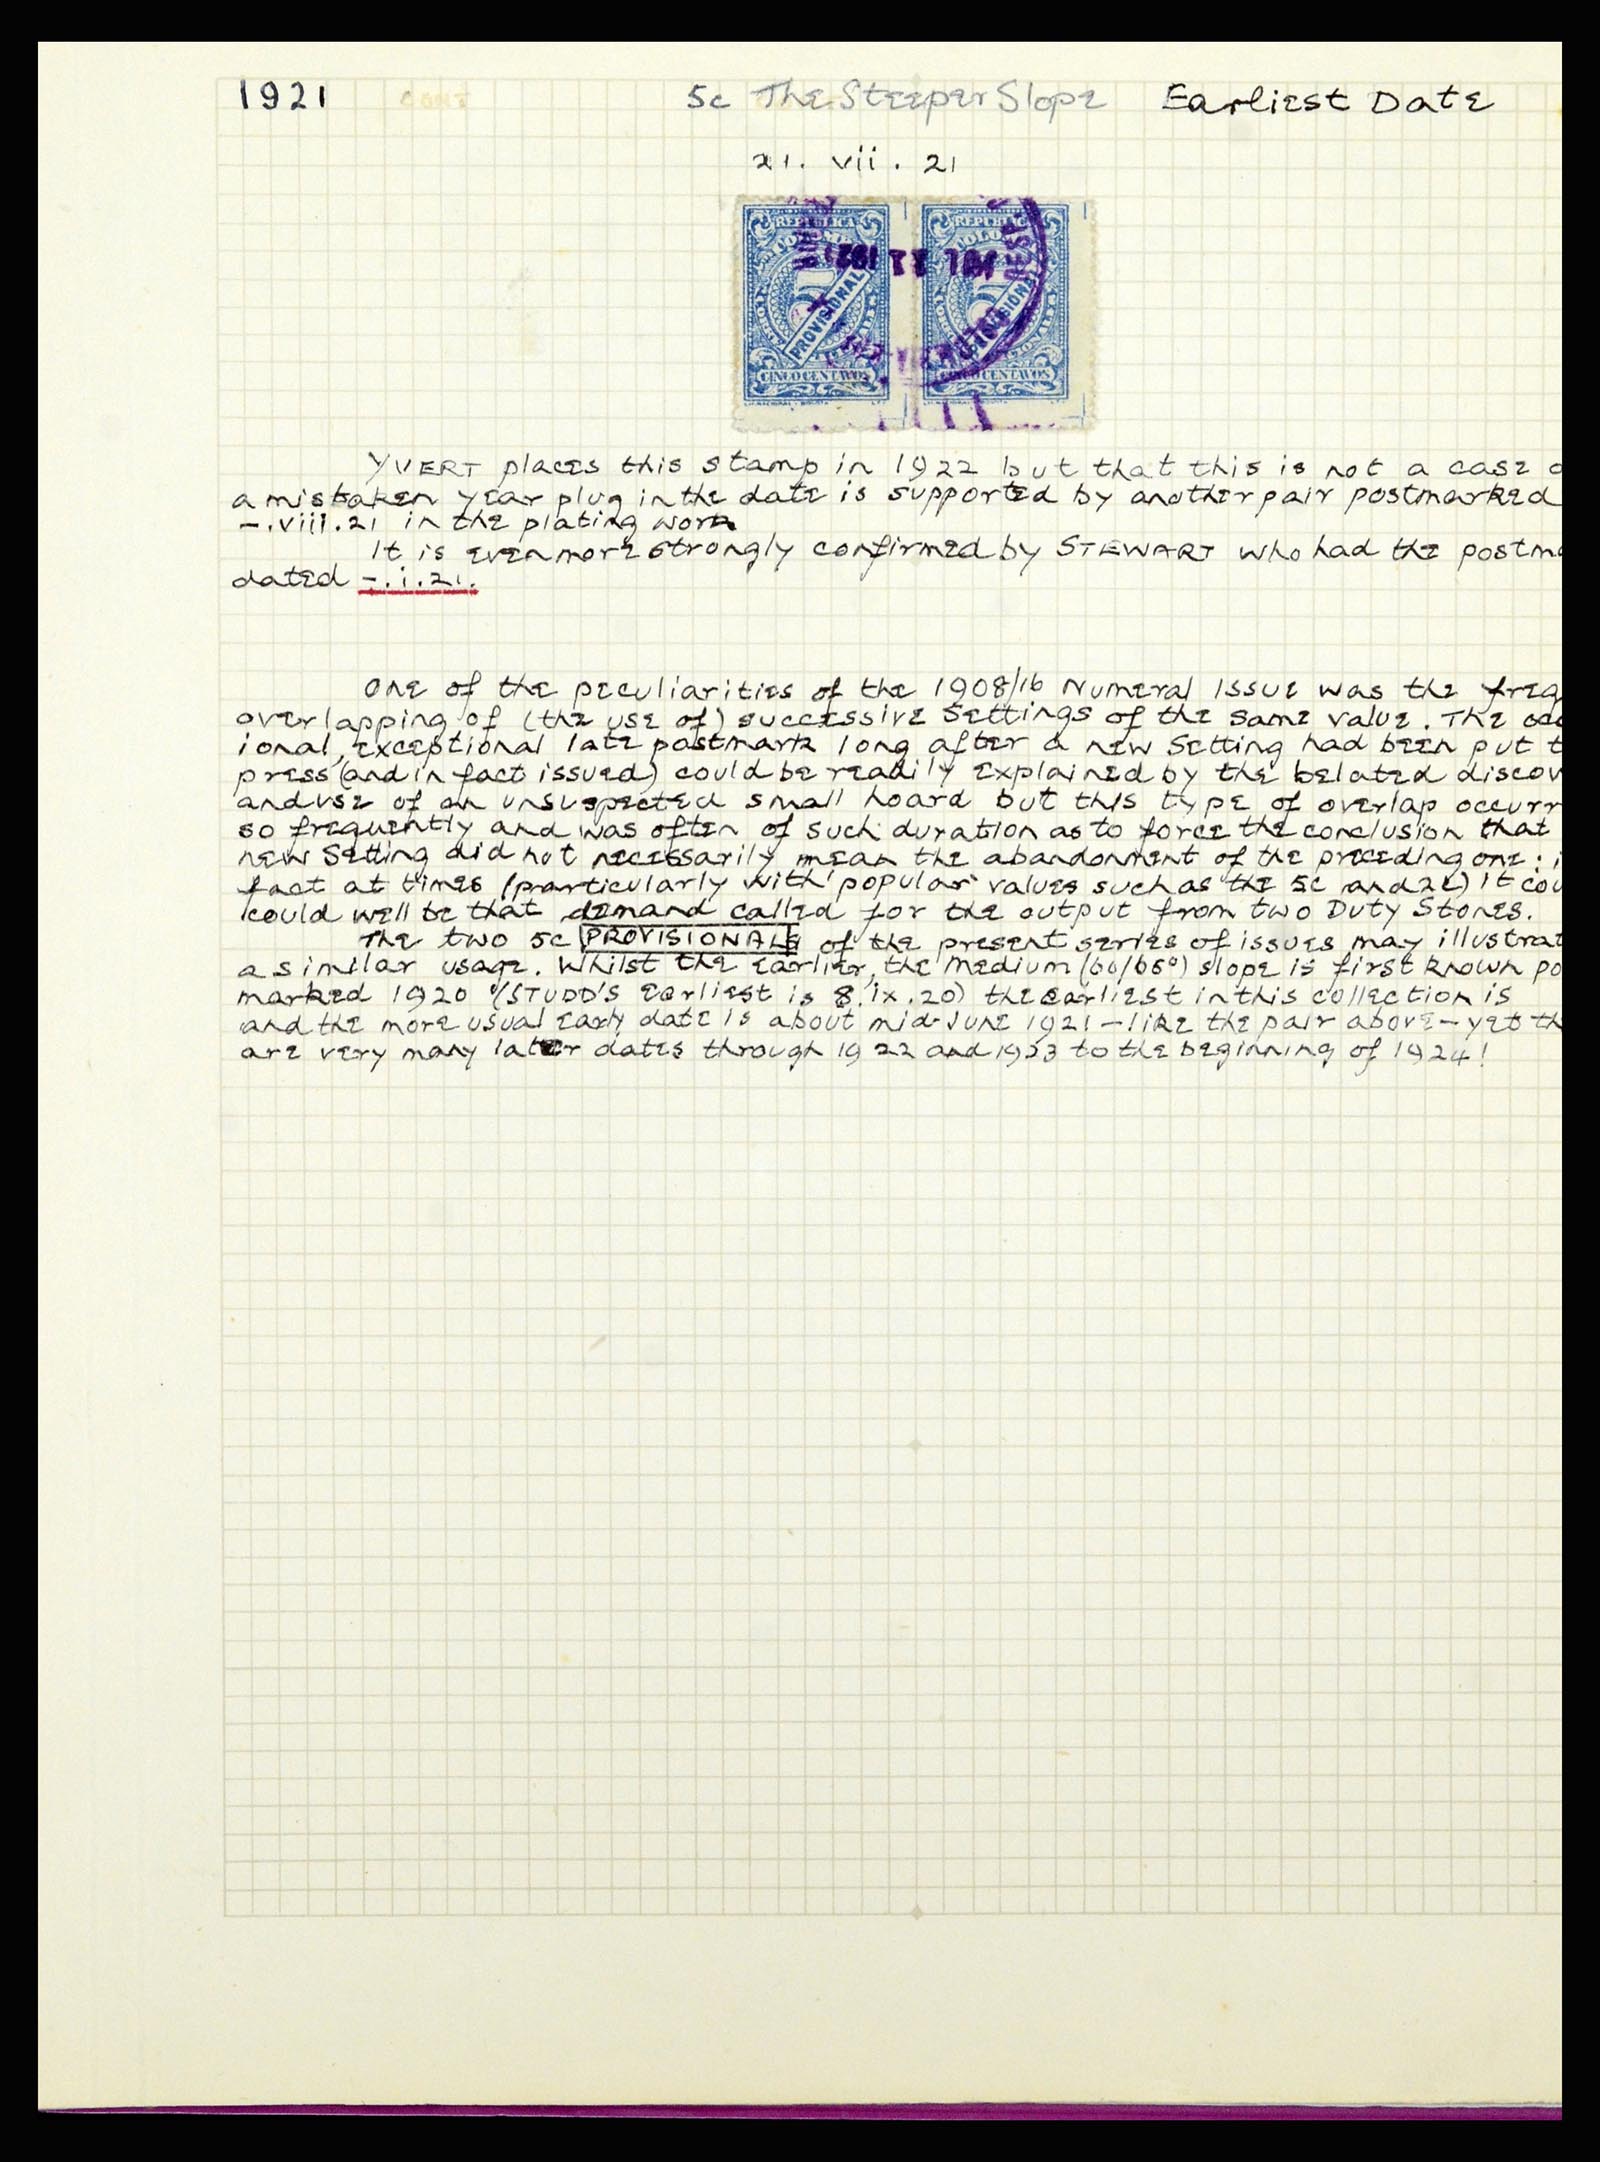 1921 5c The Steeper Slope Earliest Date
21. vii. 21
REPUBLICA REPUBLIC
COLOMB COLO
PROVISIONAL PROVISIONAL
JUL 21 1921
CINCO CENTAVOS CINCO CENTAVOS
YVERT places this stamp in 1922 but that this is not a case o
a mistaken year plug in the date is supported by another pair postmarked
-.viii.21 in the plating work
It is even more strongly confirmed by STEWART who had the postma
dated -.i.21.
One of the peculiarities of the 1908/16 Numeral Issue was the freq
overlapping of (the use of) successive Settings of the same value. The occ
ional, exceptional late postmark long after a new Setting had been put t
press (and in fact issued) could be readily explained by the belated discov
and use of an unsuspected small hoard but this type of overlap occurr
so frequently and was often of such duration as to force the conclusion that
new Setting did not necessarily mean the abandonment of the preceding one: i
fact at times (particularly with 'popular' values such as the 5c and 2c) it cou
could well be that demand called for the output from two Duty Stones.
The two 5c PROVISIONALS of the present series of issues may illustrat
a similar usage. Whilst the earlier, the Medium (60/65°) slope is first known po
marked 1920 (STUDD'S earliest is 8.ix.20) the earliest in this collection is
and the more usual early date is about mid-June 1921 - like the pair above - yet th
are very many later dates through 1922 and 1923 to the beginning of 1924!